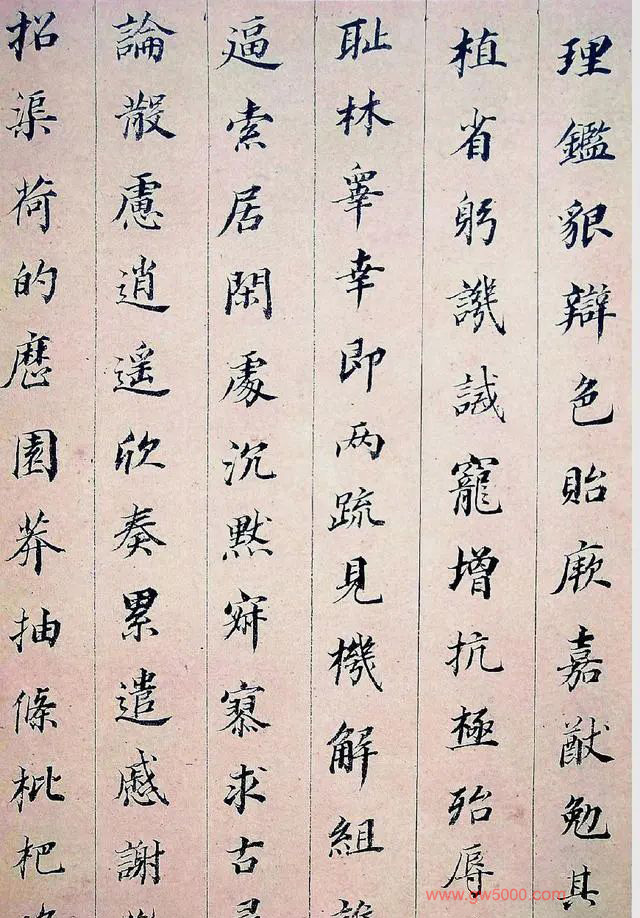 理鑑貌辯色貽厥嘉猷勉其
植省躬譏誡寵增抗極殆辱
耻林睪幸即两疏見機解組
逼索居閑處沉默寂寥求古
論散慮逍遥欣奏累遣慼謝
招渠荷的歷園莽抽條枇杷
www.gw5000.com